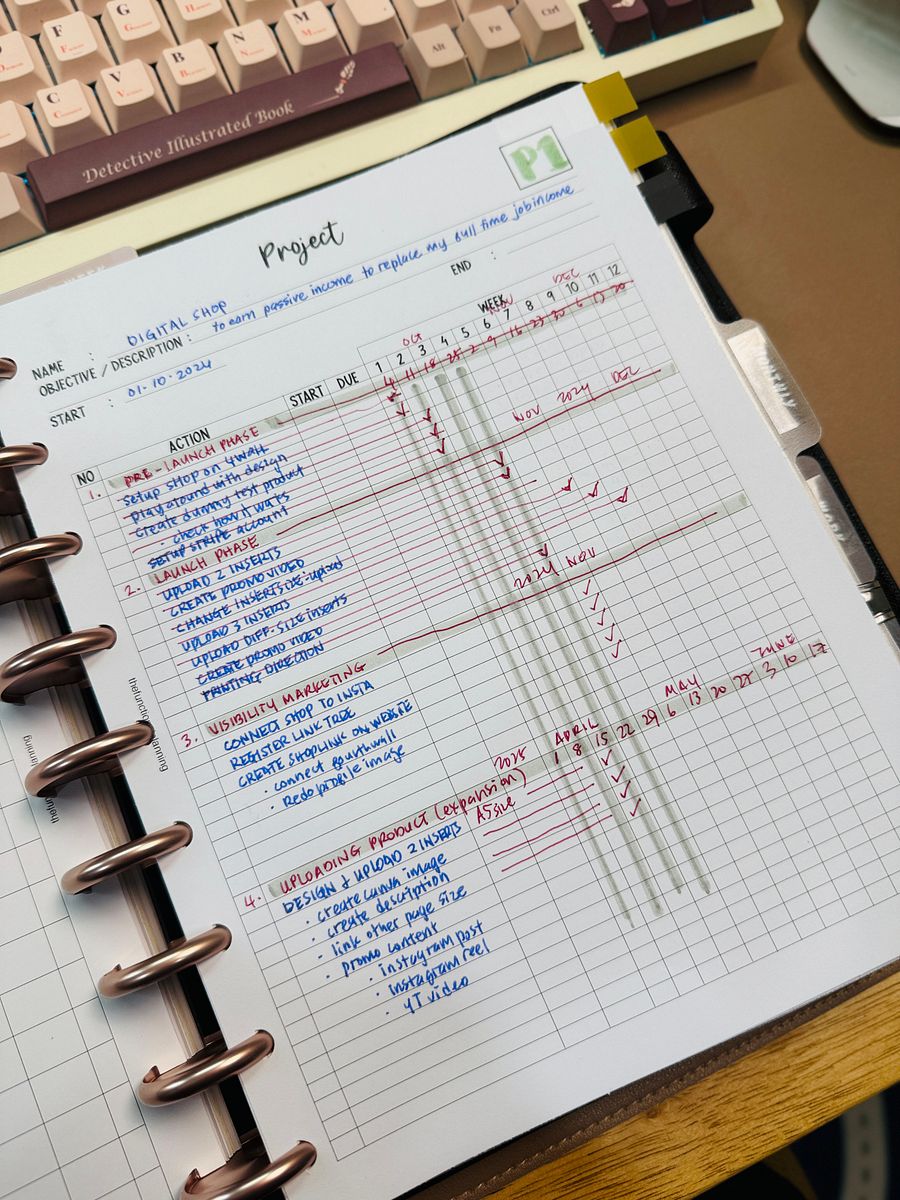 F
G
H
J
M
N
B
V
C
Alt
Fn
Ctrl
Detective Illustrated Book
P1
Project
NAME : DIGITAL SHOP
OBJECTIVE / DESCRIPTION : to earn passive income to replace my full time job income
START : 01-10-2024
END :
WEEK
OCT NOV DEC
NO ACTION START DUE 1 2 3 4 5 6 7 8 9 10 11 12
4 11 18 25 2 9 16 23 30 6 13 20
1. PRE-LAUNCH PHASE
setup shop on 4wall
play around with design
create dummy test product
• check how it works
SETUP STRIPE account
2. LAUNCH PHASE NOV 2024 DEC
UPLOAD 2 INSERTS
CREATE PROMO VIDEO
CHANGE INSERT SIZE - upload
UPLOAD 3 INSERTS
UPLOAD DIFF-SIZE inserts
CREATE PROMO VIDEO
PRINTING DIRECTION
3. VISIBILITY MARKETING 2024 NOV
CONNECT SHOP TO INSTA
REGISTER LINK TREE
CREATE SHOPLINK ON WEBSITE
• connect fourthwall
• Redo profile image
4. UPLOADING PRODUCT (expansion) 2025 APRIL MAY JUNE
1 8 15 22 29 6 13 20 27 3 10 17
DESIGN & UPLOAD 2 INSERTS A5 size
• create canva image
• create description
• link other page size
• promo content
• instagram post
• instagram reel
• YT video
thefunctionplanning